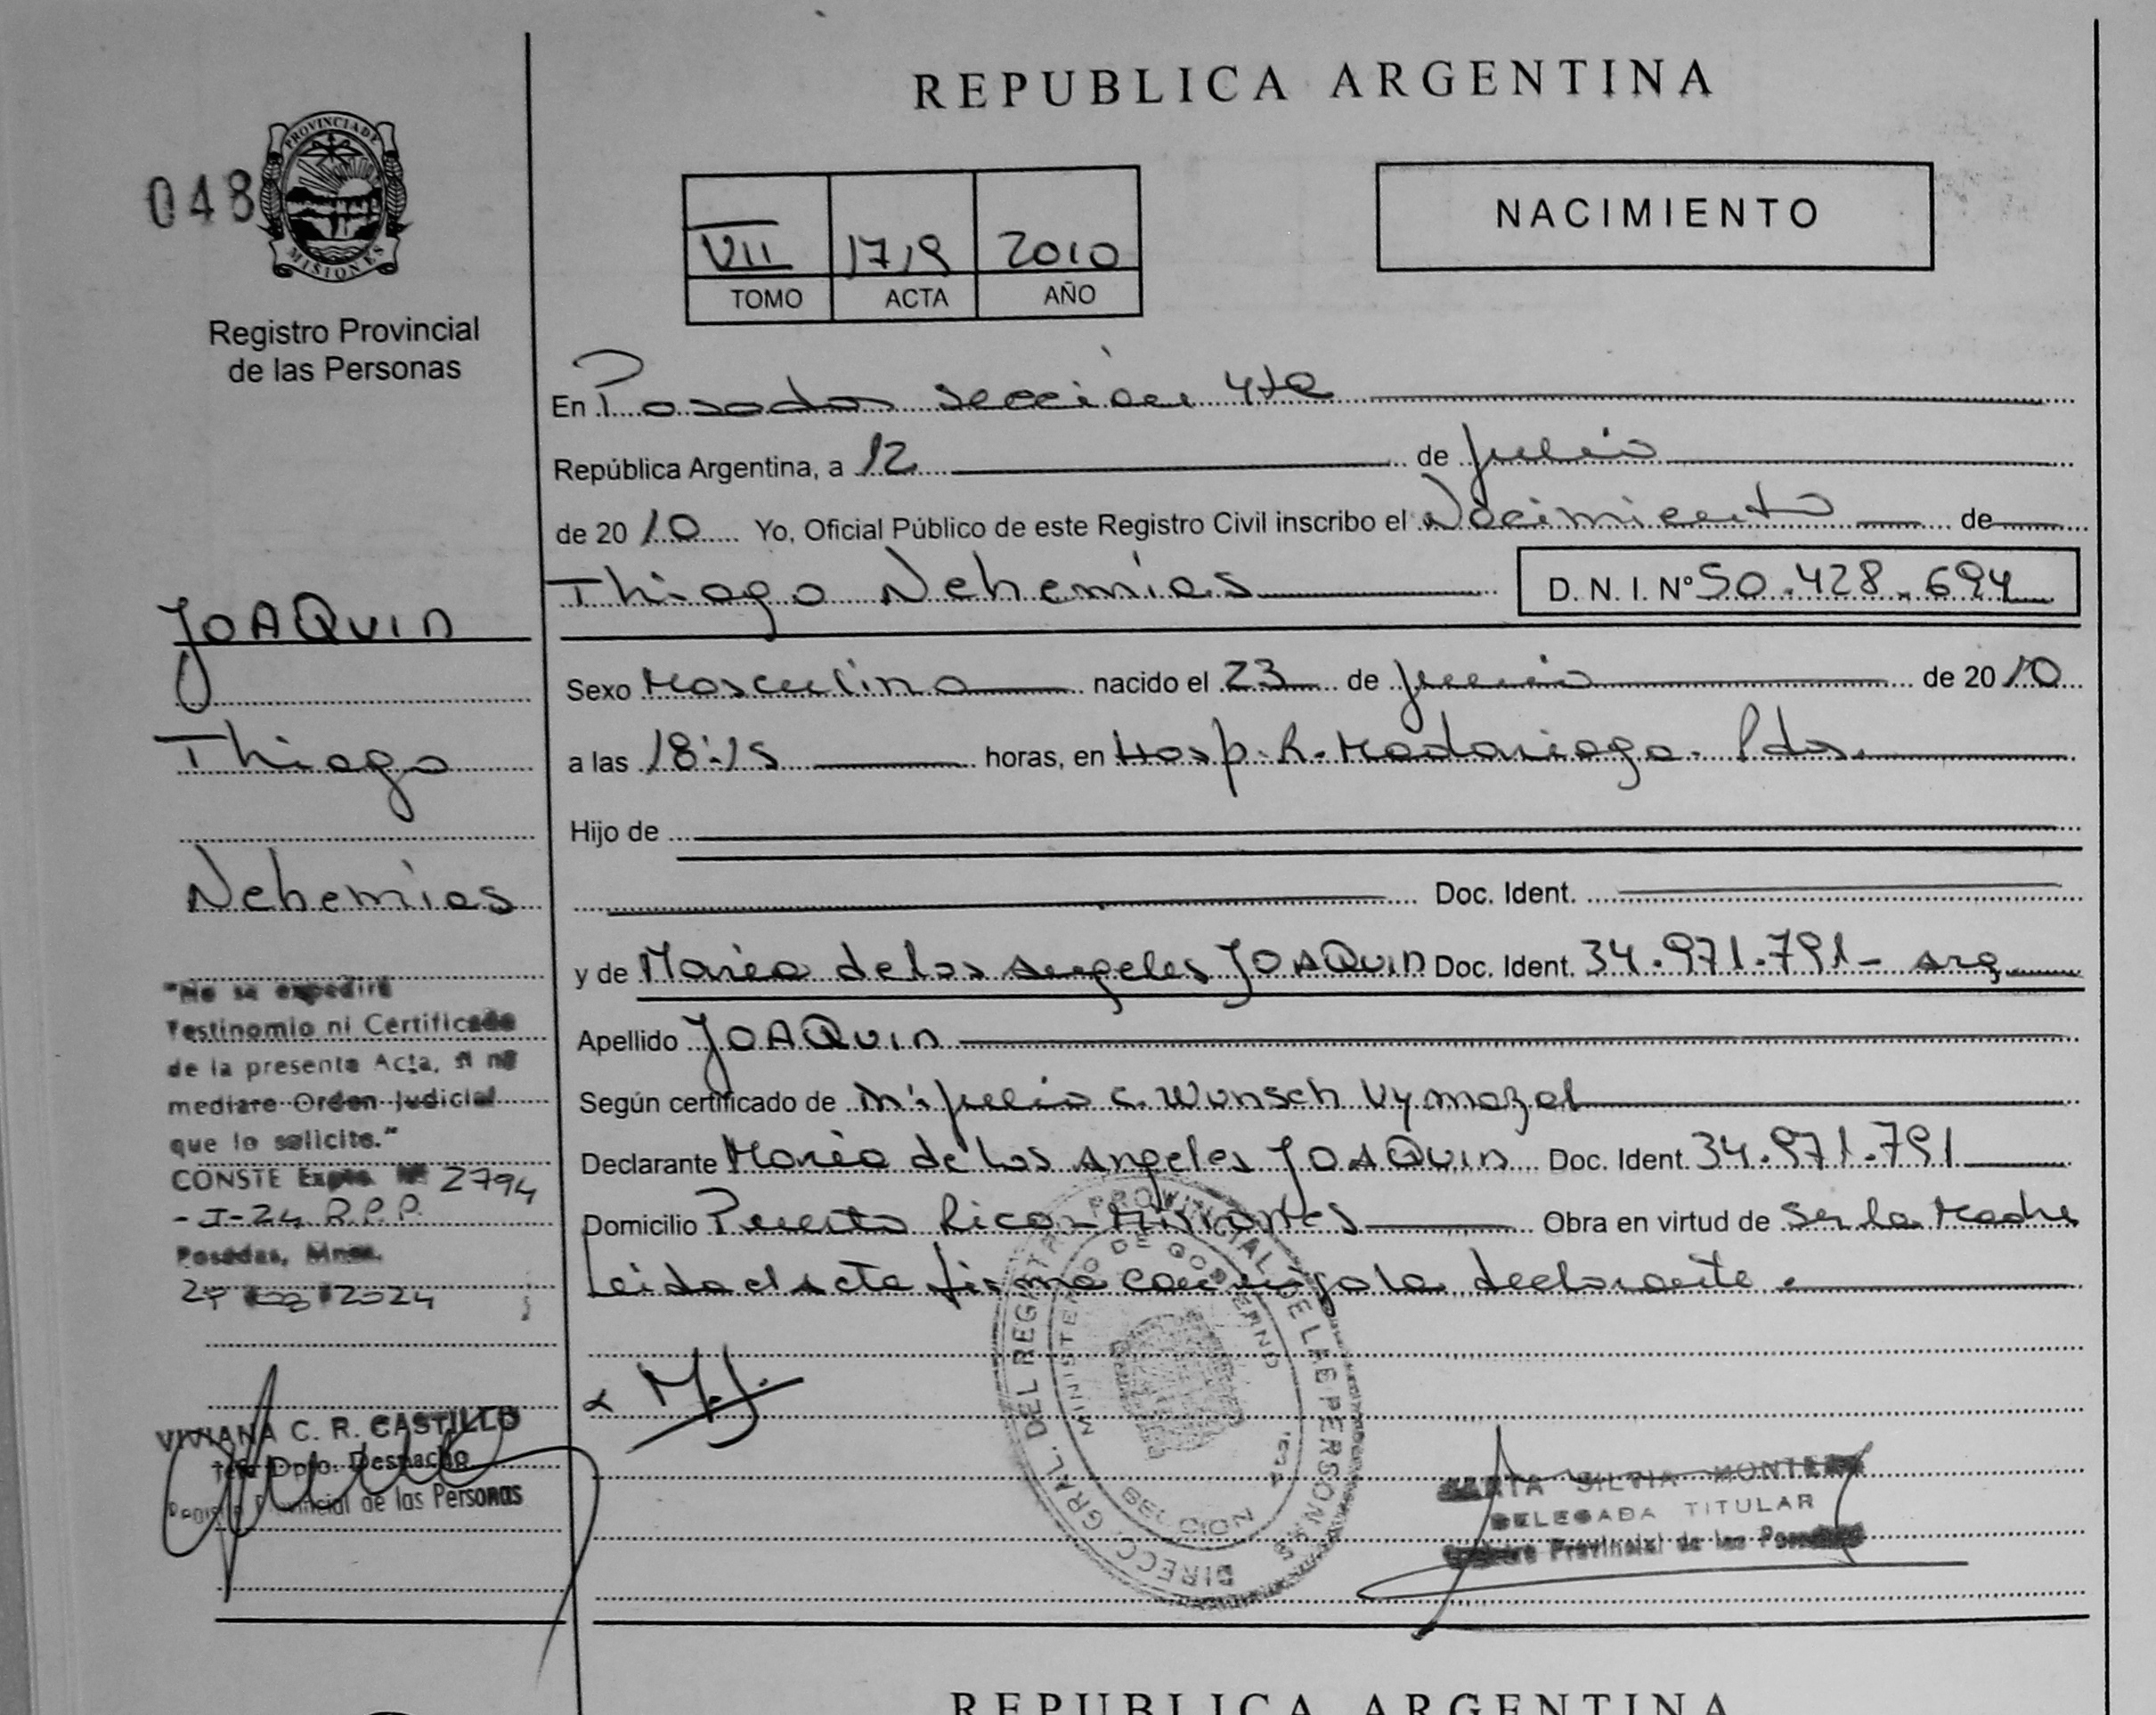 REPUBLICA ARGENTINA
048
PROVINCIA DE
MISIONES
Registro Provincial
de las Personas
VII 1719 2010
TOMO ACTA AÑO
NACIMIENTO
En Posadas sección 4ta
República Argentina, a 12 de julio
de 2010 Yo, Oficial Público de este Registro Civil inscribo el Nacimiento de
Thiago Nehemías D. N. I. Nº 50.428.694
Sexo Masculino nacido el 23 de junio de 2010
a las 18:15 horas, en Hosp. R. Madariaga. Pdas.
Hijo de
Doc. Ident.
y de María de los Angeles JOAQUIN Doc. Ident. 34.971.791- arg
Apellido JOAQUIN
Según certificado de Julio C. Wunsch Vymazal
Declarante María de los Angeles JOAQUIN Doc. Ident. 34.971.791
Domicilio Puerto Rico - Misiones Obra en virtud de ser la madre
Leida el acta firma conmigo la declarante.
M.J.
JOAQUIN
Thiago
Nehemías
"No se expedirá
Testinomio ni Certificado
de la presente Acta, si no
mediare Orden Judicial
que lo solicite."
CONSTE Expte. Nº 2794
- J-24 R.P.P.
Posadas, Mnes.
2024
VIVIANA C. R. CASTILLO
Jefa Dpto. Despacho
Registro Provincial de las Personas
DIRECC. GRAL. DEL REGISTRO PROVINCIAL DE LAS PERSONAS
MINISTERIO DE GOBIERNO
MARTA SILVIA MONTERO
DELEGADA TITULAR
Registro Provincial de las Personas
REPUBLICA ARGENTINA